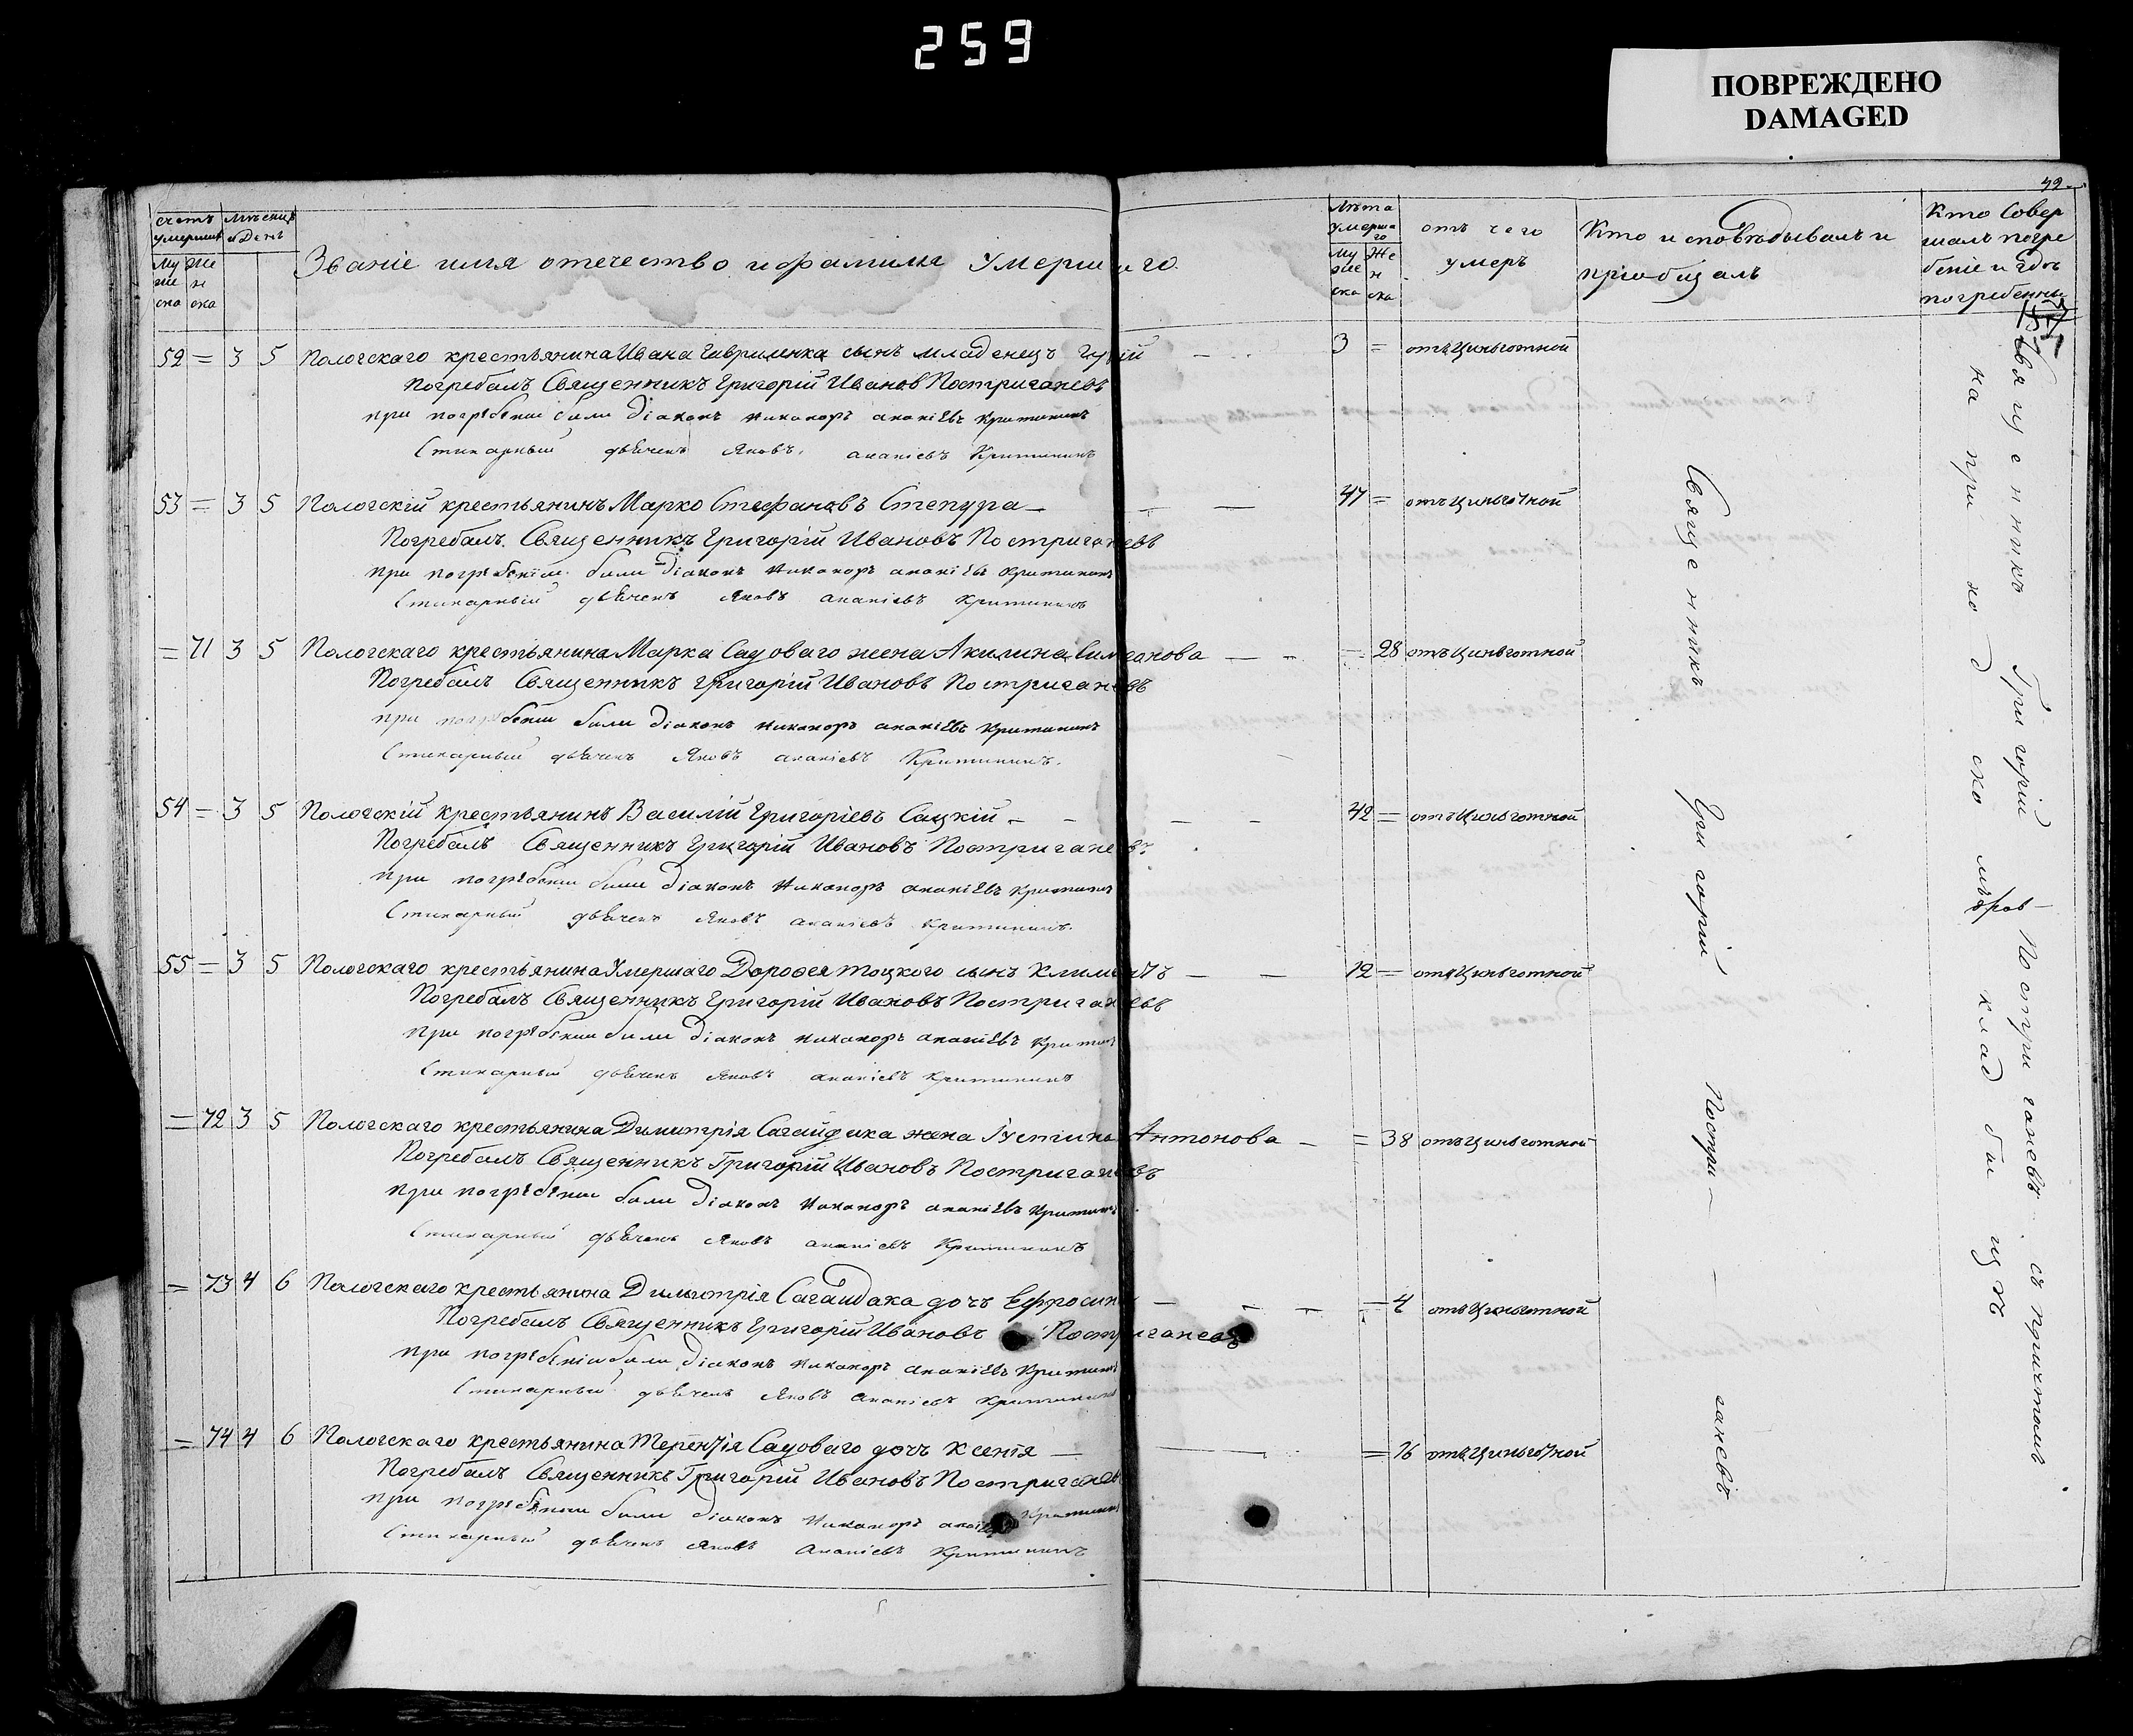 259
ПОВРЕЖДЕНО
DAMAGED
42
счетъ умершихъ
Мѣсяцъ и День
Му же ска
Же н ска
Званіе имя отечество и фамилія Умершаго
Лѣта умершаго
Му же ска
Же н ска
отъ чего умеръ
Кто исповѣдывалъ и пріобщалъ
Кто Совершалъ погребеніе и гдѣ погребенны
52 = 3 5 Пологскаго крестьянина Ивана Гавриленка сынъ младенецъ Гурій — 3 = отъ Цынготной
Погребалъ Священникъ Григорій Иванов Постриганевъ
при погребении были діаконъ Никаноръ ананіевъ Критининъ
Стихарный дьячекъ Яковъ ананіевъ Критининъ
53 = 3 5 Пологскій крестьянинъ Марко Стефановъ Степура — — — 47 = отъ цынготной
Погребалъ Священникъ Григорій Ивановъ Постриганевъ
при погребеніи были діаконъ Никаноръ ананіевъ Критининъ
Стихарный дьячекъ Яковъ ананіевъ Критининъ
= 71 3 5 Пологскаго крестьянина Марка Садоваго жена Акилина Симеонова — — = 28 отъ Цынготной
Погребалъ Священникъ Григорій Ивановъ Постриганевъ
при погребении были діаконъ Никаноръ ананіевъ Критининъ
Стихарный дьячекъ Яковъ ананіевъ Критининъ.
54 = 3 5 Пологскій крестьянинъ Василій Григоріевъ Сацкій — — — — 42 = отъ Цынготной
Погребалъ Священникъ Григорій Ивановъ Постриганевъ
при погребении были діаконъ Никаноръ ананіевъ Критининъ
Стихарный дьячекъ Яковъ ананіевъ Критининъ.
55 = 3 5 Пологскаго крестьянина Умершаго Дорофея Тоцкого сынъ Климентъ — — 12 = отъ Цынготной
Погребалъ Священникъ Григорій Ивановъ Постриганевъ
при погребении были діаконъ Никаноръ ананіевъ Критининъ
Стихарный дьячекъ Яковъ ананіевъ Критининъ
= 72 3 5 Пологскаго крестьянина Димитрія Сагайдака жена Іустина Антонова — = 38 отъ Цынготной
Погребалъ Священникъ Григорій Ивановъ Постриганевъ
при погребении были діаконъ Никаноръ ананіевъ Критининъ
Стихарный дьячекъ Яковъ ананіевъ Критининъ
= 73 4 6 Пологскаго крестьянина Димитрія Сагайдака дочь Ефросинія — — — = 4 отъ Цынготной
Погребалъ Священникъ Григорій Ивановъ Постриганевъ
при погребеніи были діаконъ Никаноръ ананіевъ Критининъ
Стихарный дьячекъ Яковъ ананіевъ Критининъ
= 74 4 6 Пологскаго крестьянина Терентія Садоваго дочь Ксенія — — = 16 отъ Цынготной
Погребалъ Священникъ Григорій Ивановъ Постриганевъ
при погребении были діаконъ Никаноръ Критининъ
Стихарный дьячекъ Яковъ Ананіевъ Критининъ
Священникъ Григорій Постри— —ганевъ
Священникъ Григорій Постриганевъ съ причтомъ
на приходскомъ кладбищѣ